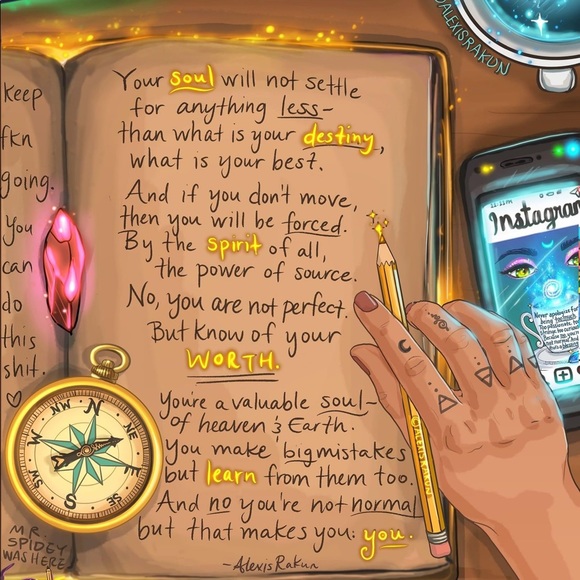 keep
fkn
going.
You
can
do
this
shit.
♡
MR.
SPIDEY
WAS HERE
Your soul will not settle
for anything less-
than what is your destiny,
what is your best.
And if you don't move,
then you will be forced.
By the spirit of all,
the power of source.
No, you are not perfect.
But know of your
WORTH.
You're a valuable soul-
of heaven & Earth.
You make big mistakes
but learn from them too.
And no you're not normal
but that makes you: you.
~AlexisRakun
@ALEXISRAKUN
Instagram
Never apologize for
being too much.
N
NE
E
SE
S
W
NW